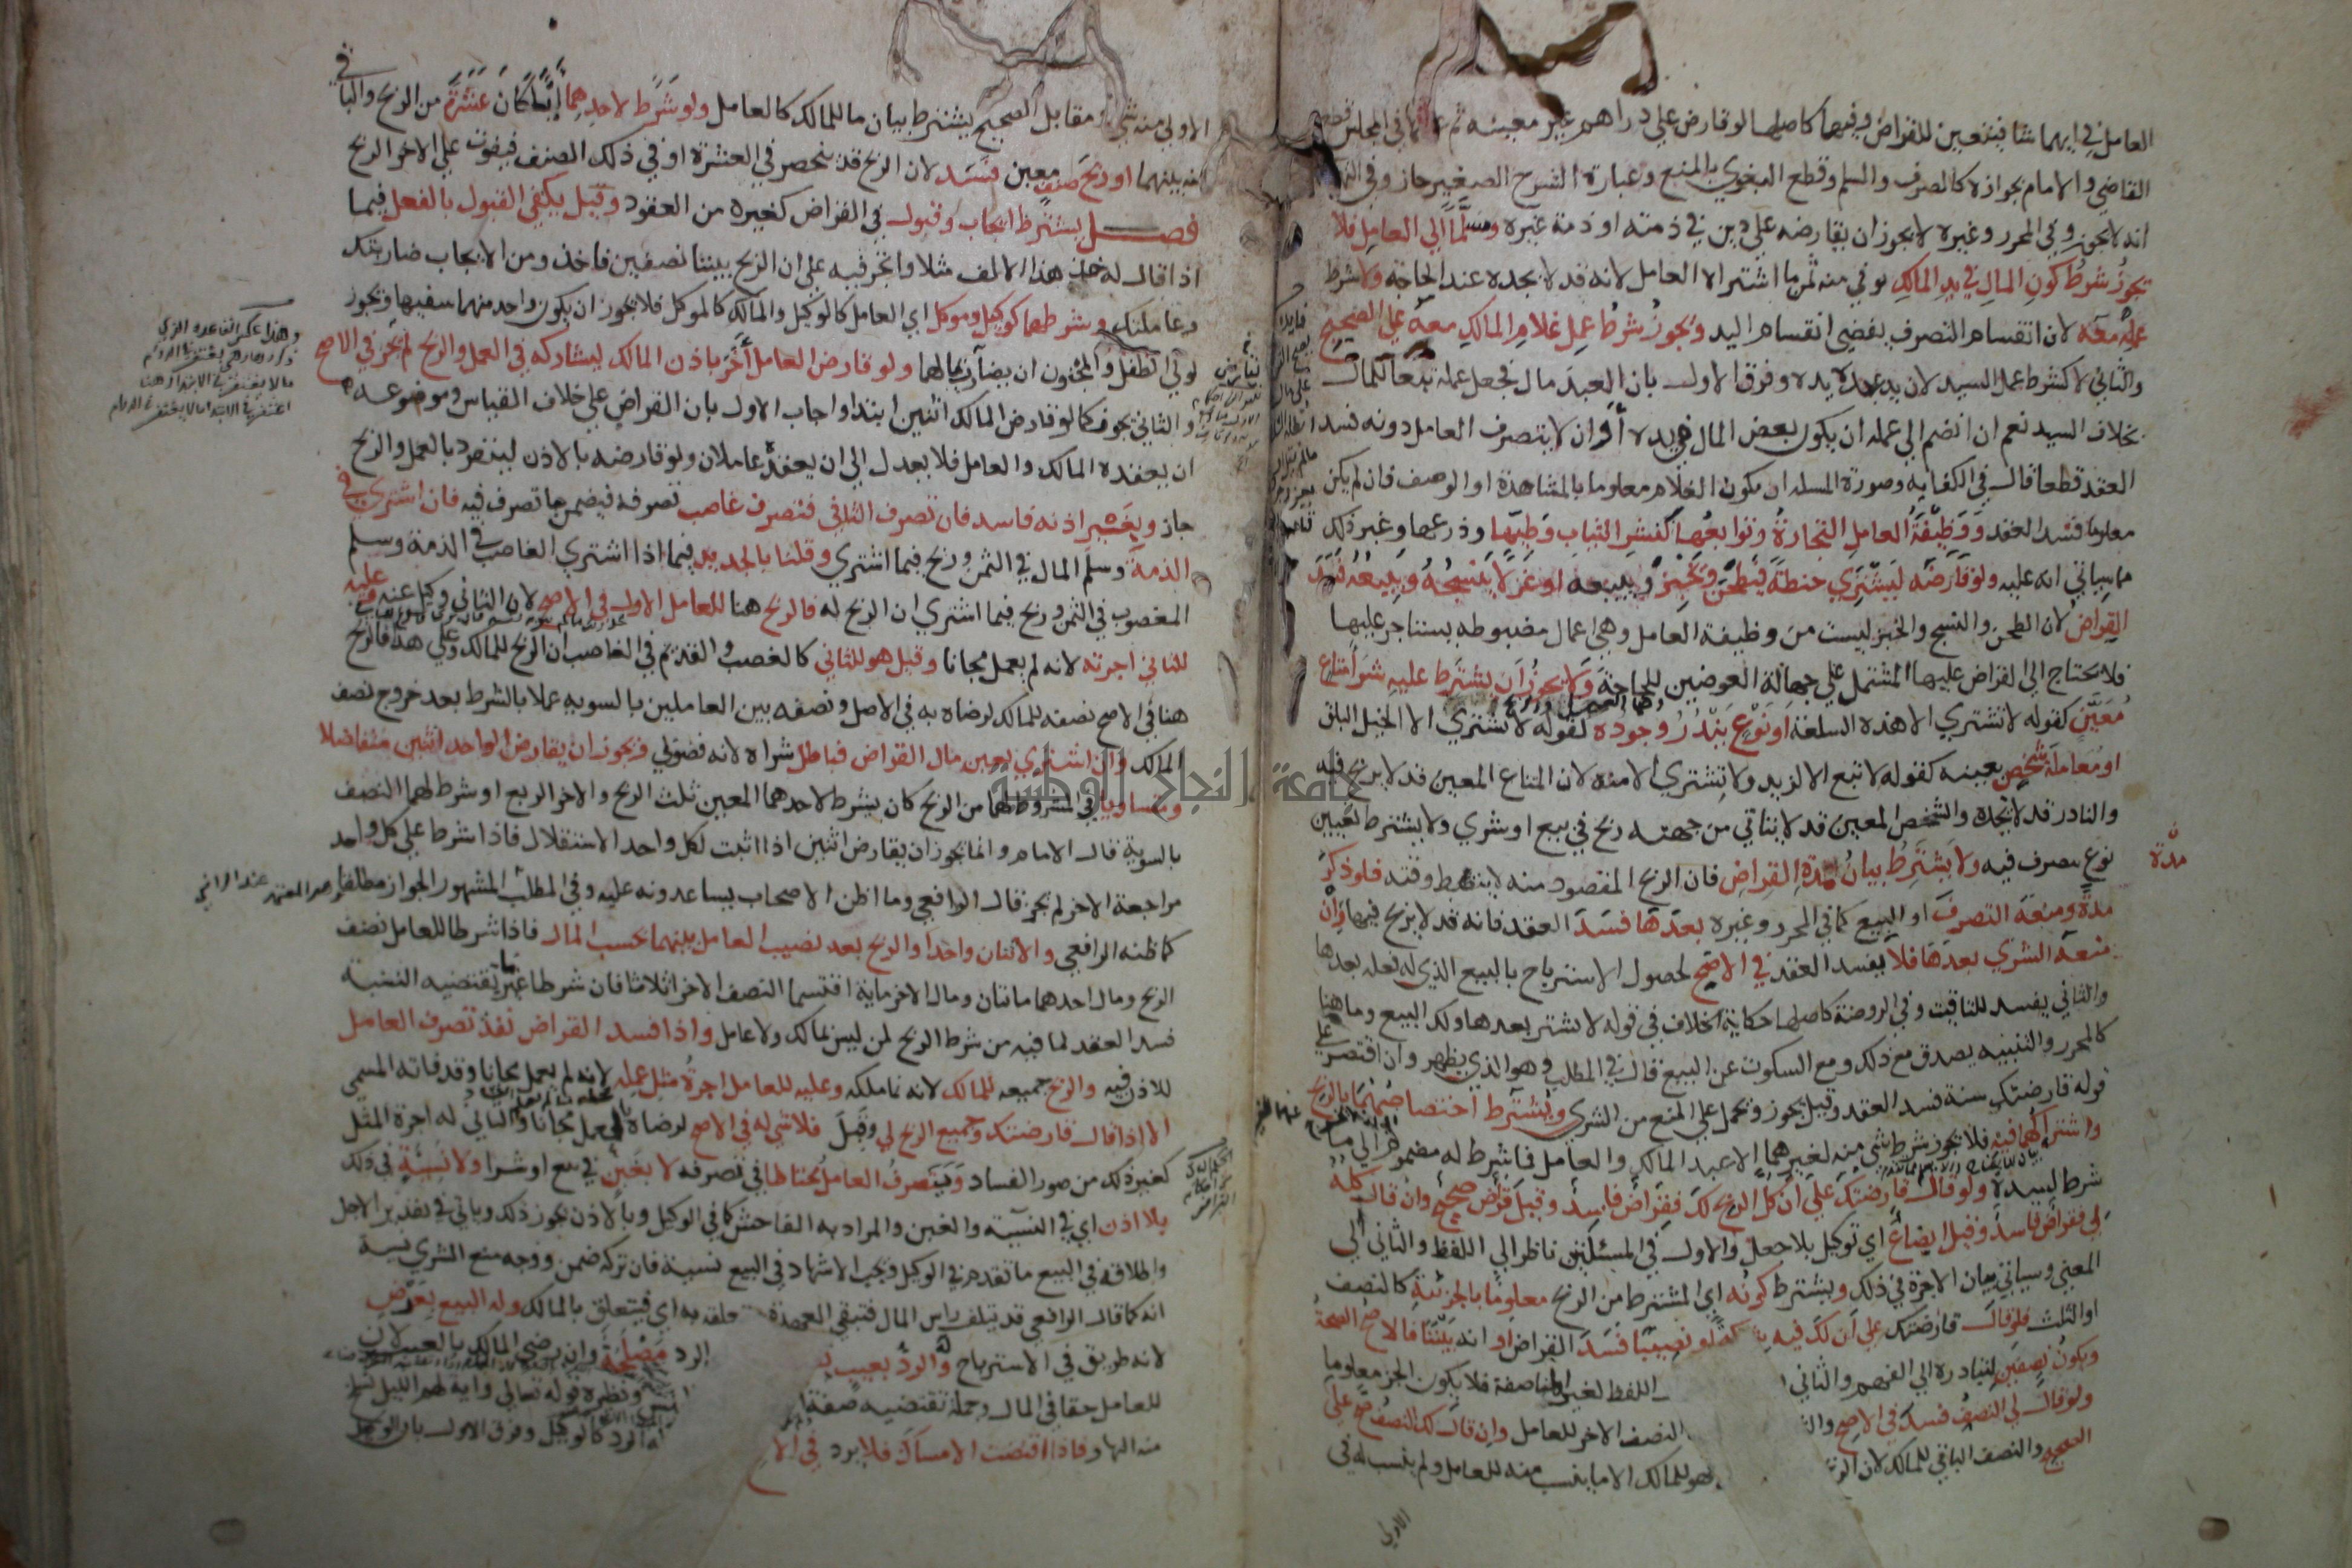 العامل في ايهما شا فيتعين للقراض وفيها كاصلها لو قارض علي دراهم غير معينه ثم عينها في المجلس قطع
القاضي والامام بجوازه كالصرف والسلم وقطع البغوي بالمنع وعبارة الشرح الصغير جاز وفي
انه لا يجوز وفي المحرر وغيره لا يجوز ان يقارضه علي دين في ذمته او ذمة غيره ومسلما الي العامل فلا
يجوز شرط كون المال في يد المالك يوفي منه ثمن ما اشتراه العامل لانه قد لا يجده عند الحاجة ولا شرط
عمله معه لان انقسام التصرف يفضي انقسام اليد ويجوز شرط عمل غلام المالك معه علي الصحيح
والثاني لا كشرط عمل السيد لان يد عبده يده وفرق الاول بان العبد مال فجعل عمله تبعا للمال
بخلاف السيد نعم ان انضم الي عمله ان يكون بعض المال في يده او ان لا يتصرف العامل دونه فسد
العقد قطعا قال في الكفايه وصورة المسله ان يكون الغلام معلوما بالمشاهدة او الوصف فان لم يكن
معلوما فسد العقد ووظيفة العامل التجارة وتوابعها كنشر الثياب وطيها وذرعها وغير ذلك
مما سياتي انه عليه ولو قارضه ليشتري حنطة فيطحن ويخبز ويبيعه او غزلا ينسجه ويبيعه فسد
القراض لان الطحن والنسج والخبز ليست من وظيفة العامل وهي اعمال مضبوطه يستاجر عليها
فلا يحتاج الي القراض عليها المشتمل علي جهالة العوضين للحاجة ولا يجوز ان يشترط عليه شرا متاع
معين كقوله لا تشتري الا هذه السلعة او نوع يندر وجوده كقوله لا تشتري الا الخيل البلق
او معاملة شخص بعينه كقوله لا تبع الا لزيد ولا تشتري الا منه لان المتاع المعين قد لا يربح فيه
والنادر قد لا يجده والشخص المعين قد لا يتاتي من جهته ربح في بيع او شري ولا يشترط تعيين
نوع يتصرف فيه ولا يشترط بيان مدة القراض فان الربح المقصود منه لا ينضبط وقته فلو ذكر
مدة
مدة ومنعه التصرف او البيع كما في المحرر وغيره بعدها فسد العقد فانه قد لا يربح فيها وان
منعه الشري بعدها فلا يفسد العقد في الاصح لحصول الاسترباح بالبيع الذي له فعله بعدها
والثاني يفسد للتاقيت وفي الروضة كاصلها حكاية الخلاف في قوله لا تشتر بعدها ولك البيع وما هنا
كالمحرر والتنبيه يصدق مع ذلك ومع السكوت عن البيع قال في المطلب وهو الذي يظهر وان اقتصر علي
قوله قارضتك سنة فسد العقد وقيل يجوز ويحمل علي المنع من الشري ويشترط اختصاصهما بالربح
واشتراكهما فيه فلا يجوز شرط شي منه لغيرهما الا عبد المالك والعامل فما شرط له مضموم الي ما
شرط لسيده ولو قال قارضتك علي ان كل الربح لك فقراض فاسد وقيل قرض صحيح وان قال كله
لي فقراض فاسد وقيل ابضاع اي توكيل بلا جعل والاول في المسئلتين ناظر الي اللفظ والثاني الي
المعني وسياتي بيان الاجرة في ذلك ويشترط كونه اي المشترط من الربح معلوما بالجزئية كالنصف
او الثلث فلو قال قارضتك علي ان لك فيه شركة او نصيبا فسد القراض او انه بيننا فالاصح الصحة
ويكون نصفين لتبادره الي الفهم والثاني اللفظ لغير المناصفة فلا يكون الجز معلوما
ولو قال لي النصف فسد في الاصح النصف الاخر للعامل وان قال لك النصف صح علي
الصحيح والنصف الباقي للمالك لان فهو للمالك الا ما ينسب منه للعامل ولم ينسب له في
الاولي
الاولي منه شي ومقابل الصحيح يشترط بيان ما للمالك كالعامل ولو شرط لاحدهما عشرة من الربح والباقي
بينهما او ربح صنف معين فسد لان الربح قد ينحصر في العشرة او في ذلك الصنف فيفوت علي الاخر الربح
فصل يشترط ايجاب وقبول في القراض كغيره من العقود وقيل يكفي القبول بالفعل فيما
اذا قال له خذ هذا الالف مثلا واتجر فيه علي ان الربح بيننا نصفين فاخذ ومن الايجاب ضاربتك
وعاملتك وشرطهما كوكيل وموكل اي العامل كالوكيل والمالك كالموكل فلا يجوز ان يكون واحد منهما سفيها ويجوز
لولي الطفل والمجنون ان يضارب بمالهما ولو قارض العامل آخر باذن المالك ليشاركه في العمل والربح لم يجز في الاصح
والثاني يجوز كما لو قارض المالك اثنين ابتدا واجاب الاول بان القراض علي خلاف القياس وموضوعه
ان يعقده المالك والعامل فلا يعدل الي ان يعقده عاملان ولو قارضه بالاذن لينفرد بالعمل والربح
جاز وبغير اذنه فاسد فان تصرف الثاني فتصرف غاصب تصرفه فيضمن ما تصرف فيه فان اشتري في
الذمة وسلم المال في الثمن وربح فيما اشتري وقلنا بالجديد فيما اذا اشتري الغاصب في الذمة وسلم
المغصوب في الثمن وربح فيما اشتري ان الربح له فالربح هنا للعامل الاول في الاصح لان الثاني وكيل عنه وعليه
للثاني اجرته لانه لم يعمل مجانا وقيل هو للثاني كالغصب والقديم في الغاصب ان الربح للمالك وعلي هذا فالربح
هنا في الاصح نصفه للمالك لرضاه به في الاصل ونصفه بين العاملين بالسويه عملا بالشرط بعد خروج نصف
المالك وان اشتري بعين مال القراض فباطل شراه لانه فضولي ويجوز ان يقارض الواحد اثنين متفاضلا
ومتساويا في المشروط لهما من الربح كان يشرط لاحدهما المعين ثلث الربح والاخر الربع او شرط لهما النصف
بالسوية قال الامام وانما يجوز ان يقارض اثنين اذا اثبت لكل واحد الاستقلال فاذا شرط علي كل واحد
مراجعة الاخر لم يجز قال الرافعي وما اظن الاصحاب يساعدونه عليه وفي المطلب المشهور الجواز مطلقا
كما ظنه الرافعي والاثنان واحدا والربح بعد نصيب العامل بينهما بحسب المال فاذا شرطا للعامل نصف
الربح ومال احدهما مائتان ومال الاخر ماية اقتسما النصف الاخر اثلاثا فان شرطا غير ما تقتضيه النسبة
فسد العقد لما فيه من شرط الربح لمن ليس بمالك ولا عامل واذا فسد القراض نفذ تصرف العامل
للاذن فيه والربح جميعه للمالك لانه نما ملكه وعليه للعامل اجرة مثل عمله لانه لم يعمل مجانا وقد فاته المسمي
الا اذا قال قارضتك وجميع الربح لي وقبل فلا شي له في الاصح لرضاه بالعمل مجانا والثاني له اجرة المثل
كغير ذلك من صور الفساد ويتصرف العامل محتاطا في تصرفه لا بغبن في بيع او شرا ولا نسيئة في ذلك
بلا اذن اي في النسيئة والغبن والمراد به الفاحش كما في الوكيل وبالاذن يجوز ذلك وياتي في تقدير الاجل
واطلاقه في البيع ما تقدم في الوكيل ويجب الاشهاد في البيع نسيئة فان تركه ضمن ووجه منع الشري نسية
انه كما قال الرافعي قد يتلف راس المال فتبقي العهدة متعلقه به اي فيتعلق بالمالك وله البيع بعرض
لانه طريق في الاسترباح والرد بعيب الرد مصلحة وان رضي المالك بالعيب لان
للعامل حقا في المال وجملة تقتضيه صفة ونظيره قوله تعالي واية لهم الليل نسلخ
منه النهار فاذا اقتضت الامساك فلا يرد في الاصح الرد كالوكيل وفرق الاول بان الوكيل
جامعة النجاح الوطنية